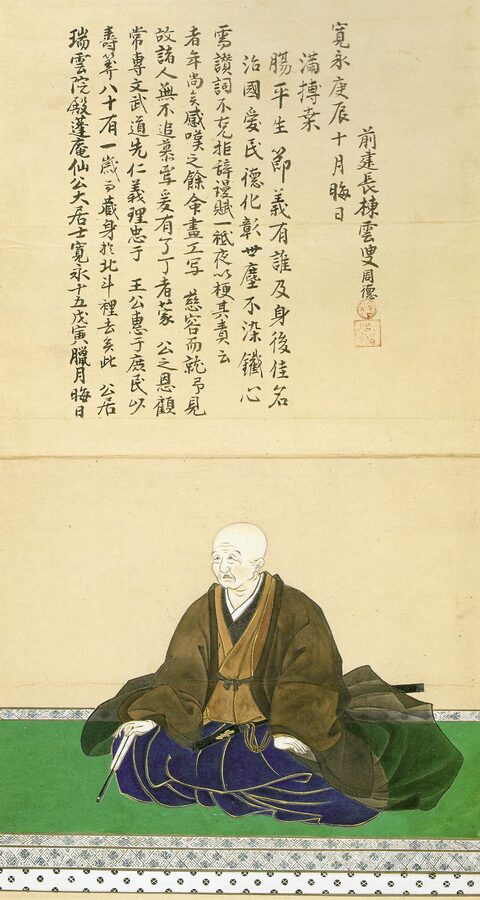 瑞雲院殿蓬庵仙公大居士寛永十五戊寅臘月晦日
壽筭八十有一歳而蔵身於北斗裡去矣此 公居
常専文武道先仁義理忠于 王公恵于庶民以
故諸人無不追慕寔爰有了丁者蒙 公之恩顧
者年尚矣感嘆之餘命畫工写 慈容而就予見
需讃詞不克拒辞謾賦一祇夜以梗其責云
治國愛民徳化彰世塵不染鐵心
腸平生節義有誰及身後佳名
満搏桒
寛永庚辰十月晦日
前建長棟雲叟周徳